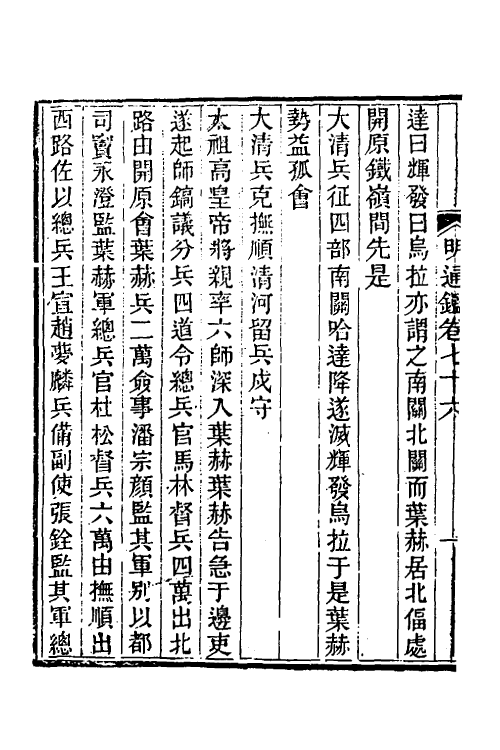 明通鑑卷七十六
一
達曰輝發曰烏拉亦謂之南關北關而葉赫居北偪處
開原鐵嶺間先是
大清兵征四部南關哈達降遂滅輝發烏拉于是葉赫
勢益孤會
大清兵克撫順清河留兵戍守
太祖高皇帝將親率六師深入葉赫葉赫告急于邊吏
遂起師鎬議分兵四道令總兵官馬林督兵四萬出北
路由開原會葉赫兵二萬僉事潘宗顏監其軍別以都
司竇永澄監葉赫軍總兵官杜松督兵六萬由撫順出
西路佐以總兵王宣趙夢麟兵備副使張銓監其軍總